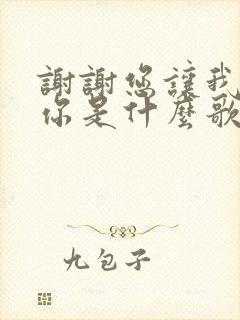 謝謝您讓我
你是什麼歌
九包子